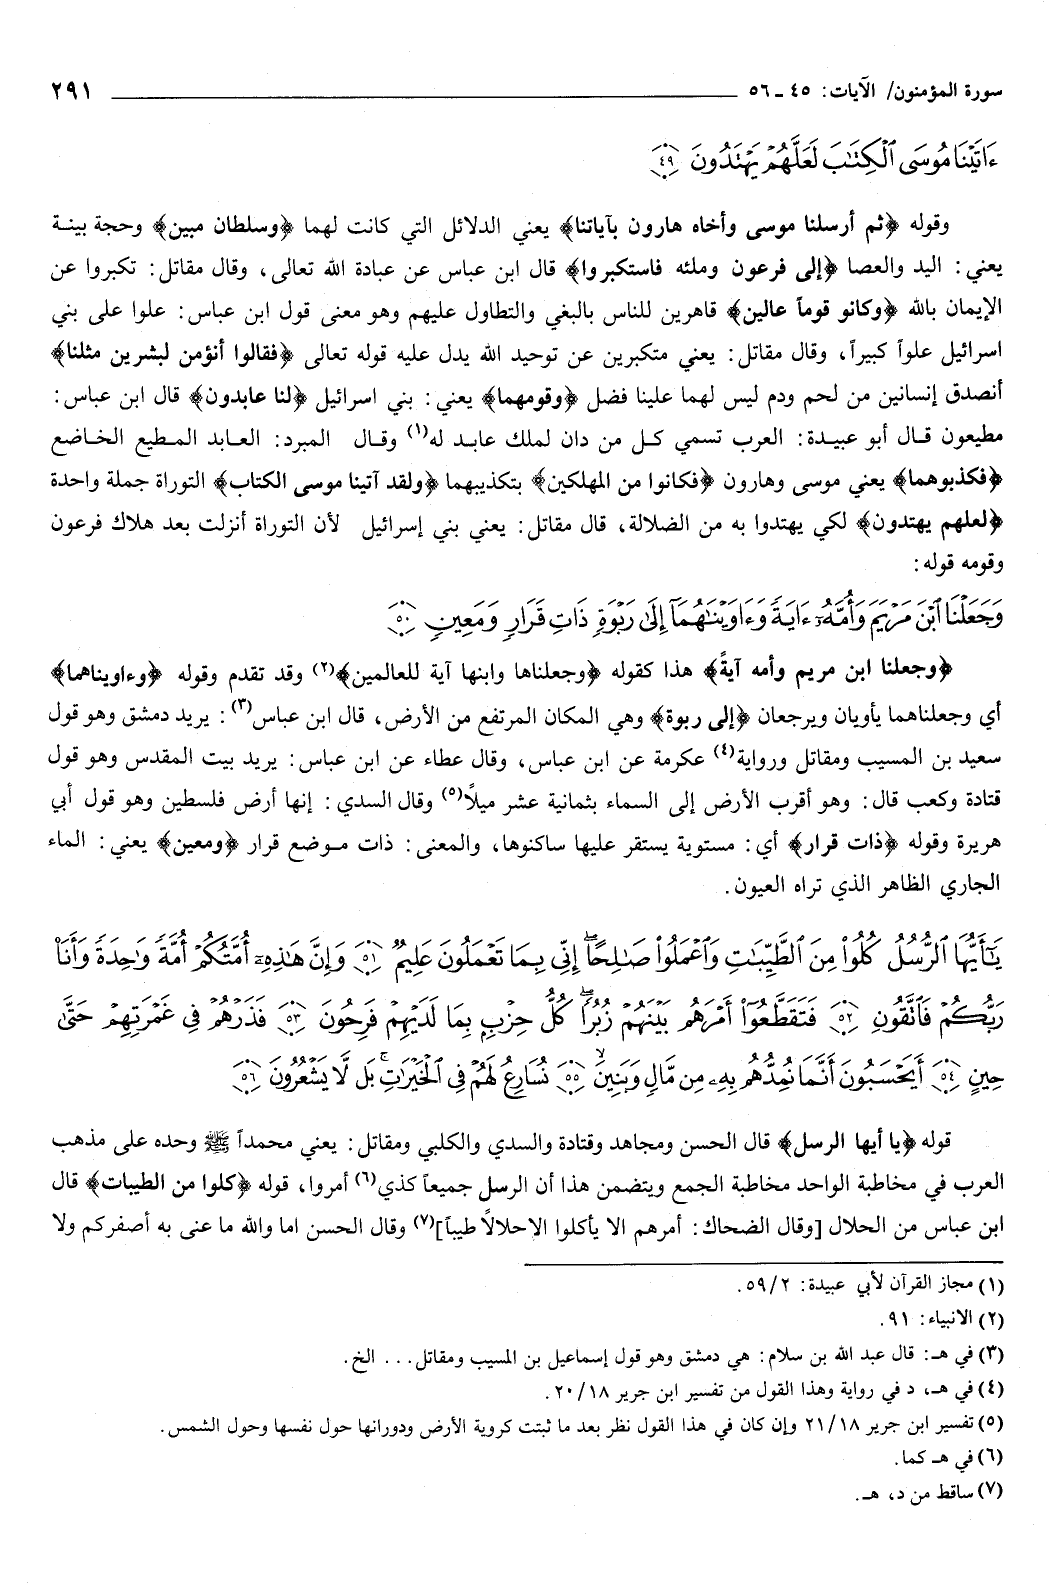 سورة المؤمنون/ الآيات: ٤٥ ـ ٥٦ ٢٩١
ءَاتَيْنَا مُوسَى ٱلْكِتَٰبَ لَعَلَّهُمْ يَهْتَدُونَ ٤٩
وقوله ﴿ثم أرسلنا موسى وأخاه هارون بآياتنا﴾ يعني الدلائل التي كانت لهما ﴿وسلطان مبين﴾ وحجة بينة
يعني: اليد والعصا ﴿إلى فرعون وملئه فاستكبروا﴾ قال ابن عباس عن عبادة الله تعالى، وقال مقاتل: تكبروا عن
الإيمان بالله ﴿وكانو قوماً عالين﴾ قاهرين للناس بالبغي والتطاول عليهم وهو معنى قول ابن عباس: علوا على بني
اسرائيل علواً كبيراً، وقال مقاتل: يعني متكبرين عن توحيد الله يدل عليه قوله تعالى ﴿فقالوا أنؤمن لبشرين مثلنا﴾
أنصدق إنسانين من لحم ودم ليس لهما علينا فضل ﴿وقومهما﴾ يعني: بني اسرائيل ﴿لنا عابدون﴾ قال ابن عباس:
مطيعون قال أبو عبيدة: العرب تسمي كل من دان لملك عابد له(١) وقال المبرد: العابد المطيع الخاضع
﴿فكذبوهما﴾ يعني موسى وهارون ﴿فكانوا من المهلكين﴾ بتكذيبهما ﴿ولقد آتينا موسى الكتاب﴾ التوراة جملة واحدة
﴿لعلهم يهتدون﴾ لكي يهتدوا به من الضلالة، قال مقاتل: يعني بني إسرائيل لأن التوراة أنزلت بعد هلاك فرعون
وقومه قوله:
وَجَعَلْنَا ٱبْنَ مَرْيَمَ وَأُمَّهُۥٓ ءَايَةً وَءَاوَيْنَٰهُمَآ إِلَىٰ رَبْوَةٍ ذَاتِ قَرَارٍ وَمَعِينٍ ٥٠
﴿وجعلنا ابن مريم وأمه آيةً﴾ هذا كقوله ﴿وجعلناها وابنها آية للعالمين﴾(٢) وقد تقدم وقوله ﴿وءاويناهما﴾
أي وجعلناهما يأويان ويرجعان ﴿إلى ربوة﴾ وهي المكان المرتفع من الأرض، قال ابن عباس(٣): يريد دمشق وهو قول
سعيد بن المسيب ومقاتل ورواية(٤) عكرمة عن ابن عباس، وقال عطاء عن ابن عباس: يريد بيت المقدس وهو قول
قتادة وكعب قال: وهو أقرب الأرض إلى السماء بثمانية عشر ميلاً(٥) وقال السدي: إنها أرض فلسطين وهو قول أبي
هريرة وقوله ﴿ذات قرار﴾ أي: مستوية يستقر عليها ساكنوها، والمعنى: ذات موضع قرار ﴿ومعين﴾ يعني: الماء
الجاري الظاهر الذي تراه العيون.
يَٰٓأَيُّهَا ٱلرُّسُلُ كُلُوا۟ مِنَ ٱلطَّيِّبَٰتِ وَٱعْمَلُوا۟ صَٰلِحًا ۖ إِنِّى بِمَا تَعْمَلُونَ عَلِيمٌ ٥١ وَإِنَّ هَٰذِهِۦٓ أُمَّتُكُمْ أُمَّةً وَٰحِدَةً وَأَنَا۠
رَبُّكُمْ فَٱتَّقُونِ ٥٢ فَتَقَطَّعُوٓا۟ أَمْرَهُم بَيْنَهُمْ زُبُرًا ۖ كُلُّ حِزْبٍۭ بِمَا لَدَيْهِمْ فَرِحُونَ ٥٣ فَذَرْهُمْ فِى غَمْرَتِهِمْ حَتَّىٰ
حِينٍ ٥٤ أَيَحْسَبُونَ أَنَّمَا نُمِدُّهُم بِهِۦ مِن مَّالٍ وَبَنِينَ ٥٥ نُسَارِعُ لَهُمْ فِى ٱلْخَيْرَٰتِ ۚ بَل لَّا يَشْعُرُونَ ٥٦
قوله ﴿يا أيها الرسل﴾ قال الحسن ومجاهد وقتادة والسدي والكلبي ومقاتل: يعني محمداً ﷺ وحده على مذهب
العرب في مخاطبة الواحد مخاطبة الجمع ويتضمن هذا أن الرسل جميعاً كذي(٦) أمروا، قوله ﴿كلوا من الطيبات﴾ قال
ابن عباس من الحلال [وقال الضحاك: أمرهم الا يأكلوا الاحلالاً طيباً](٧) وقال الحسن اما والله ما عنى به أصفركم ولا
(١) مجاز القرآن لأبي عبيدة: ٥٩/٢.
(٢) الانبياء: ٩١.
(٣) في هـ: قال عبد الله بن سلام: هي دمشق وهو قول إسماعيل بن المسيب ومقاتل... الخ.
(٤) في هـ، د في رواية وهذا القول من تفسير ابن جرير ٢٠/١٨.
(٥) تفسير ابن جرير ٢١/١٨ وإن كان في هذا القول نظر بعد ما ثبتت كروية الأرض ودورانها حول نفسها وحول الشمس.
(٦) في هـ كما.
(٧) ساقط من د، هـ.